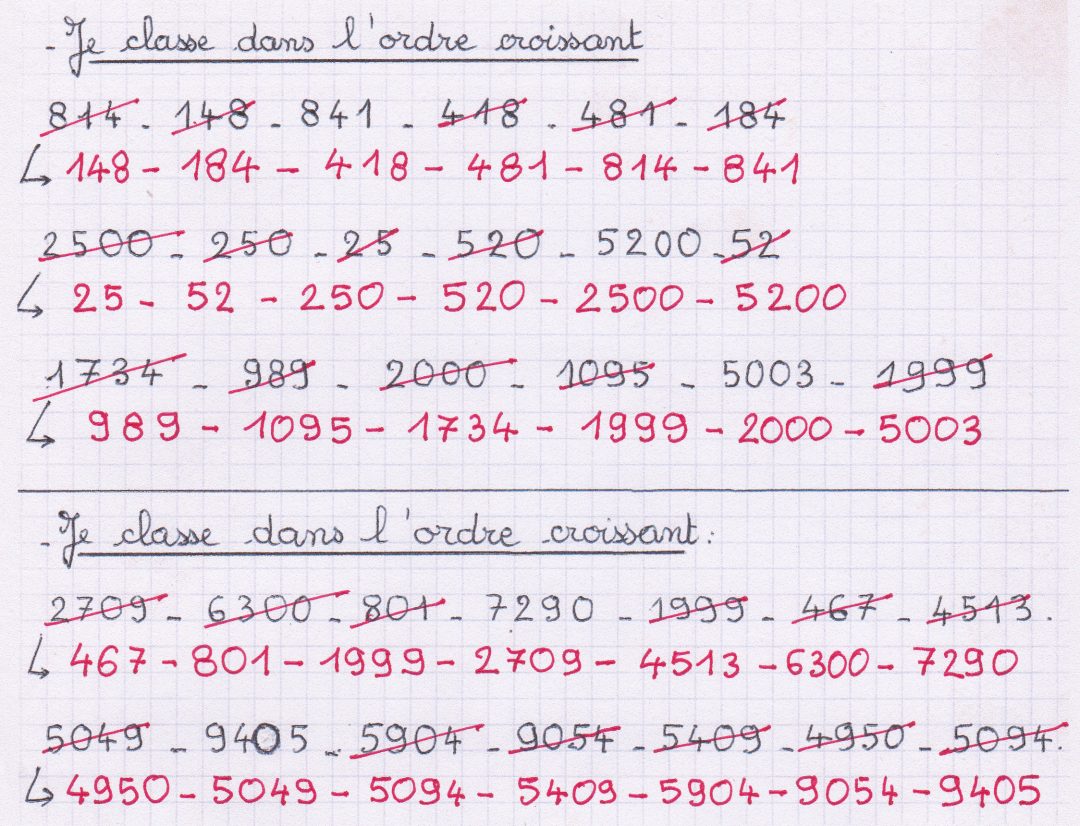 - Je classe dans l'ordre croissant
814 - 148 - 841 - 418 - 481 - 184
↳ 148 - 184 - 418 - 481 - 814 - 841
2500 - 250 - 25 - 520 - 5200 - 52
↳ 25 - 52 - 250 - 520 - 2500 - 5200
1734 - 989 - 2000 - 1095 - 5003 - 1999
↳ 989 - 1095 - 1734 - 1999 - 2000 - 5003
- Je classe dans l'ordre croissant :
2709 - 6300 - 801 - 7290 - 1999 - 467 - 4513.
↳ 467 - 801 - 1999 - 2709 - 4513 - 6300 - 7290
5049 - 9405 - 5904 - 9054 - 5409 - 4950 - 5094.
↳ 4950 - 5049 - 5094 - 5409 - 5904 - 9054 - 9405